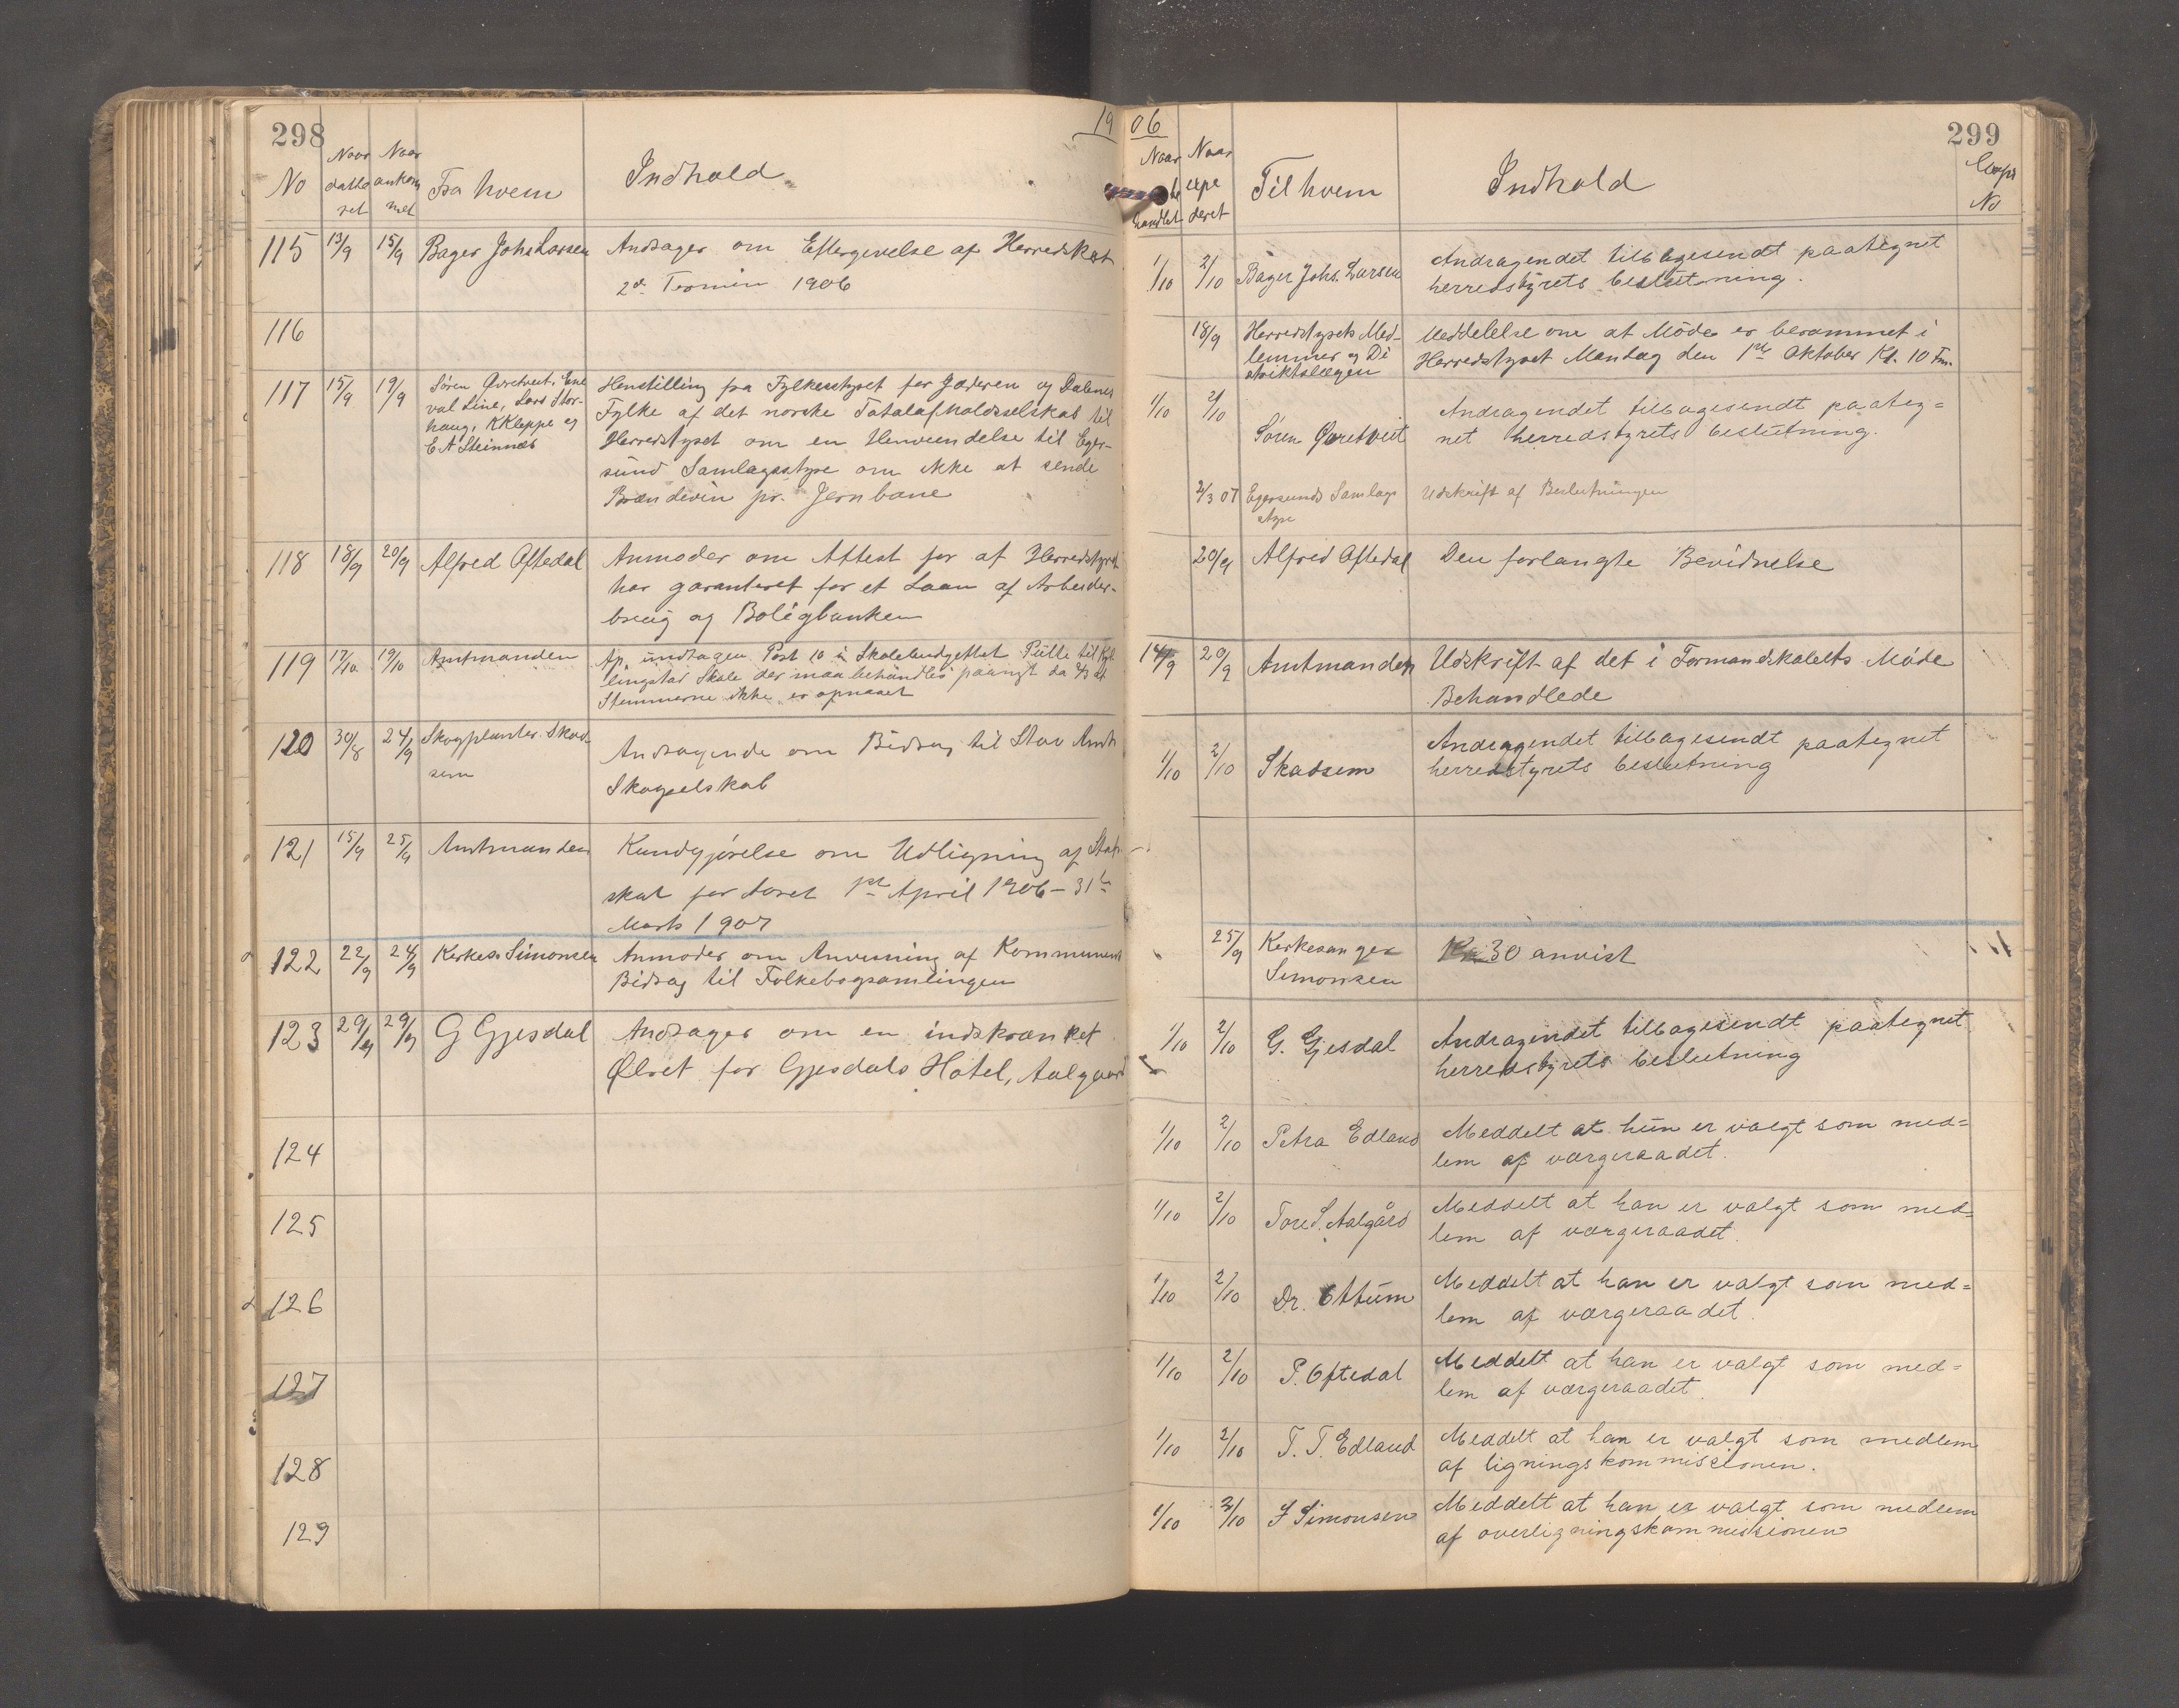 298
1906
299
No
Naar datteret
Naar ankommet
Fra hvem
Indhold
115 13/9 15/9 Bager Johs Larsen Andrager om Eftergivelse af Herredskat
2den Termin 1906
116
117 15/9 19/9
val Line, Lars Stor-
haug, K Kleppe og
E A Steinnes
Henstilling fra Fylkesstyret for Jæderen og Dalenes
Fylke af det norske Totalafholdsselskab til
Herredstyret om en Henvendelse til Eger-
sund Samlagsstyre om ikke at sende
Brændevin pr. Jernbane
118 18/9 20/9 Alfred Oftedal Anmoder om Attest for at Herredstyret
har garanteret for et Laan af Arbeider-
brug og Boligbanken
119 17/10 19/10 Amtmanden
Ap. undtagen Post 10 i Skolebudgettet Pulte til
Skole der maa behandles paanyt da 2/3 af
Stemmerne ikke er opnaaet
120 30/8 24/9 Skogplanter Skad-
sem
Andragende om Bidrag til Stav Amts
Skogselskab
121 15/9 25/9 Amtmanden Kundgjørelse om Udligning af Stats
skat for Aaret 1ste April 1906 - 31te
Marts 1907
122 22/9 24/9 Kirkes. Simonsen Anmoder om Anvisning af Kommunens
Bidrag til Folkebogsamlingen
123 29/9 29/9 G Gjesdal Andrager om en indskrænket
Ølret for Gjesdals Hotel, Aalgaard
124
125
126
127
128
129
Naar behandlet
Naar expederet
Til hvem
Indhold
Copi No
1/10 2/10 Bager Johs. Larsen Andragendet tilbagesendt paategnet
herredstyrets beslutning.
18/9 Herredstyrets Med-
lemmer og Di
striktslægen
Meddelelse om at Møde er berammet i
Herredstyret Mandag den 1ste Oktober Kl. 10 Fm.
1/10 2/10 Søren Qvretveit Andragendet tilbagesendt paateg=
net herredstyrets beslutning.
2/3 07 Egersunds Samlags
styre
Udskrift af Beslutningen
20/9 Alfred Oftedal Den forlangte Bevidnelse
14/9 20/9 Amtmanden Udskrift af det i Formandskabets Møde
Behandlede
1/10 2/10 Skadsem Andragendet tilbagesendt paategnet
herredstyrets beslutning
25/9 Kirkesanger
Simonsen
Kr 30 anvist
1/10 2/10 G. Gjesdal Andragendet tilbagesendt paategnet
herredstyrets beslutning
1/10 2/10 Petra Edland Meddelt at hun er valgt som med=
lem af værgeraadet.
1/10 2/10 Tore S. Aalgård Meddelt at han er valgt som med=
lem af værgeraadet.
1/10 2/10 Dr. Ottum Meddelt at han er valgt som med=
lem af værgeraadet.
1/10 2/10 P. Oftedal Meddelt at han er valgt som med=
lem af værgeraadet.
1/10 2/10 T. T. Edland Meddelt at han er valgt som medlem
af ligningskommissionen.
1/10 2/10 F Simonsen Meddelt at han er valgt som medlem
af overligningskommissionen